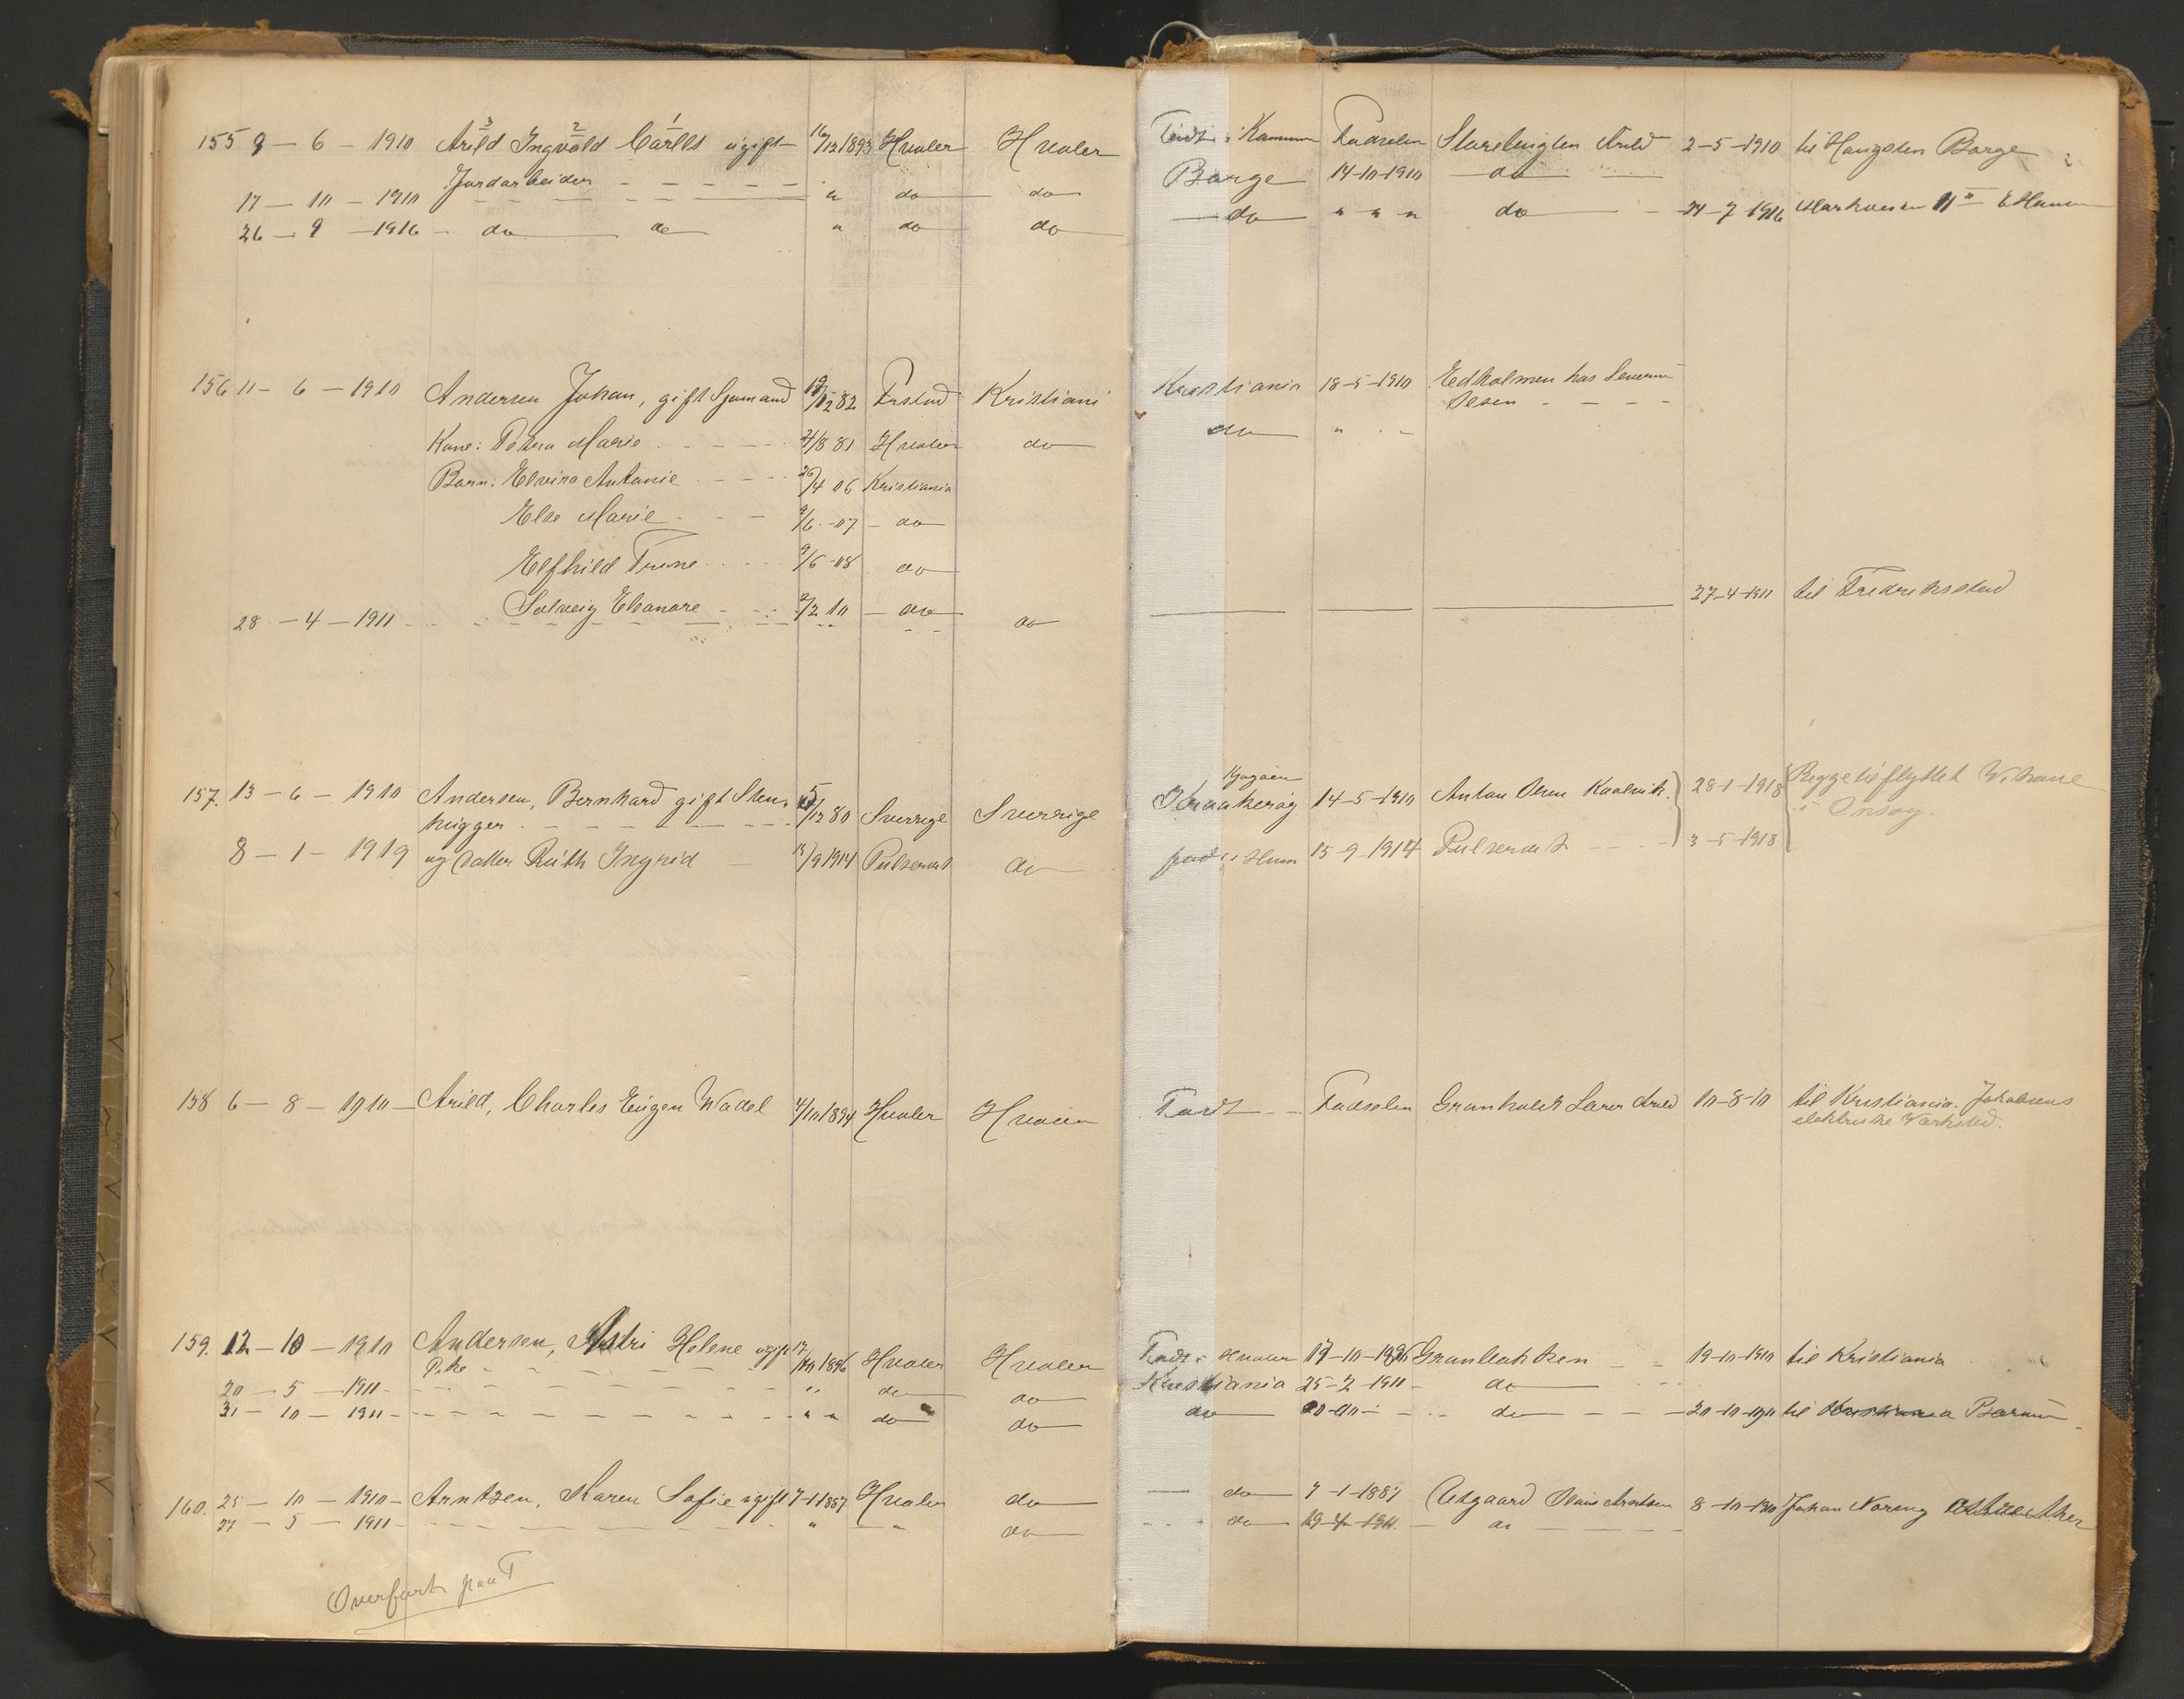 155 9 - 6 - 1910 Arild Ingvald Carlls ugift 16/12 1893 Hvaler Hvaler Född i Kommun Fødselen Storebingden Arild 2-5-1910 til Haugsten Borge
Jordarbeider
17 - 10 - 1910 " do do Borge 14-10-1910 do
26 - 9 - 1916 do do " do do do " " " do 24-7-1916
156 11 - 6 - 1910 Andersen Johan, gift Sjømand 82 Kristiani Kristiania 18-5-1910 Edholmen hos Severin
Olsen
Kone: Petra Marie 4/8 81 Hvaler do do "
Barn: Elvira Antonie 26/4 06 Kristiania
Else Marie 9/6 -07 do
Elfhild Trine 9/6 -08 do
Solveig Elonore 2/2 10 do
28 - 4 - 1911 do 27-4-1911 til Fredriksstad
157. 13 - 6 - 1910 Andersen, Bernhard gift Sten- 5/12 80 Sverrige Sverrige 14-5-1910 Anton Olsen 28-1-1918 Rygge tilflyttet
hugger
i Onsøy.
8 - 1 - 1919 og datter Ruth Ingrid 15/9 1914 do 15-9-1914 3-5-1918
158 6 - 8 - 1910 Arild, Charles Eugen Wadel 4/10 1894 Hvaler Hvaler Født Fødselen Granholdt Lærer Arild 10-8-10 til Kristiania. Jakobsens
elektriske Værksted.
159. 12 - 10 - 1910 Andersen, Astri Helene ugift 17/10 1896 Hvaler Hvaler Født i Hvaler 17-10-1896 Granbakken 19-10-1910 til Kristiania
Pike
20 - 5 - 1911 " do do Kristiania 25-2-1911 do
31 - 10 - 1911 " " do do do do 20-10-1911 til Kristiania Bærum
160. 25 - 10 - 1910 Arntzen, Karen Sofie ugift 7-1-1887 Hvaler do do 7-1-1887 Utgaard Olaus Arntsen 8-10-1910 Johan Noreng Østre Aker
27 - 5 - 1911 " " do do 19-4-1911 do
Overført paa T